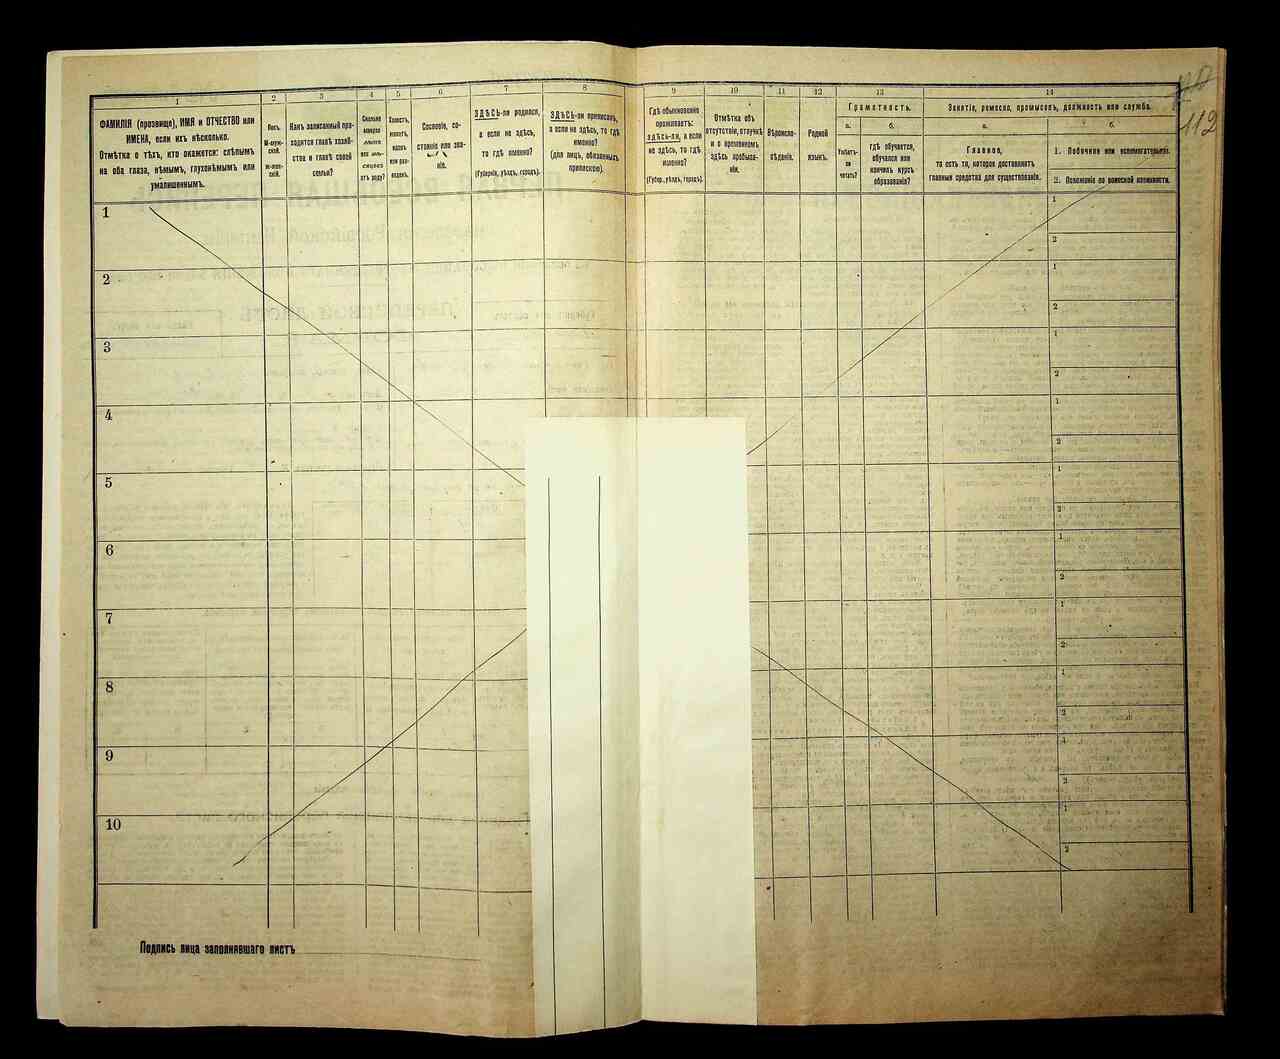 112
1
ФАМИЛІЯ (прозвище), ИМЯ и ОТЧЕСТВО или
ИМЕНА, если ихъ нѣсколько.
Отмѣтка о тѣхъ, кто окажется: слѣпымъ
на оба глаза, нѣмымъ, глухонѣмымъ или
умалишеннымъ.
2
Полъ.
М-муж-
ской.
Ж-жен-
скій.
3
Какъ записанный при-
ходится главѣ хозяй-
ства и главѣ своей
семьи?
4
Сколько
минуло
лѣтъ
или мѣ-
сяцевъ
отъ роду?
5
Холостъ,
женатъ,
вдовъ
или раз-
веденъ.
6
Сословіе, со-
стояніе или зва-
ніе.
7
ЗДѢСЬ-ли родился,
а если не здѣсь,
то гдѣ именно?
(Губернія, уѣздъ, городъ).
8
ЗДѢСЬ-ли приписанъ,
а если не здѣсь, то гдѣ
именно?
(для лицъ, обязанныхъ
припискою).
9
Гдѣ обыкновенно
проживаетъ:
здѣсь-ли, а если
не здѣсь, то гдѣ
именно?
(Губер., уѣздъ, городъ).
10
Отмѣтка объ
отсутствіи, отлучкѣ
и о временномъ
здѣсь пребыва-
ніи.
11
Вѣроиспо-
вѣданіе.
12
Родной
языкъ.
13
Грамотность.
а.
Умѣетъ-
ли
читать?
б.
гдѣ обучается,
обучался или
кончилъ курсъ
образованія?
14
Занятіе, ремесло, промыселъ, должность или служба.
а.
Главное,
то есть то, которое доставляетъ
главныя средства для существованія.
б.
1. Побочное или вспомогательное.
2. Положеніе по воинской повинности.
1
1
2
2
1
2
3
1
2
4
1
2
5
1
2
6
1
2
7
1
2
8
1
2
9
1
2
10
1
2
Подпись лица заполнявшаго листъ